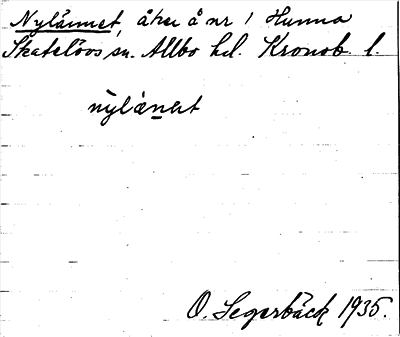 Nylännet, åker å nr 1 Hunna
Skatelövs sn. Allbo hd. Kronob. l.
O. Segerbäck 1935.